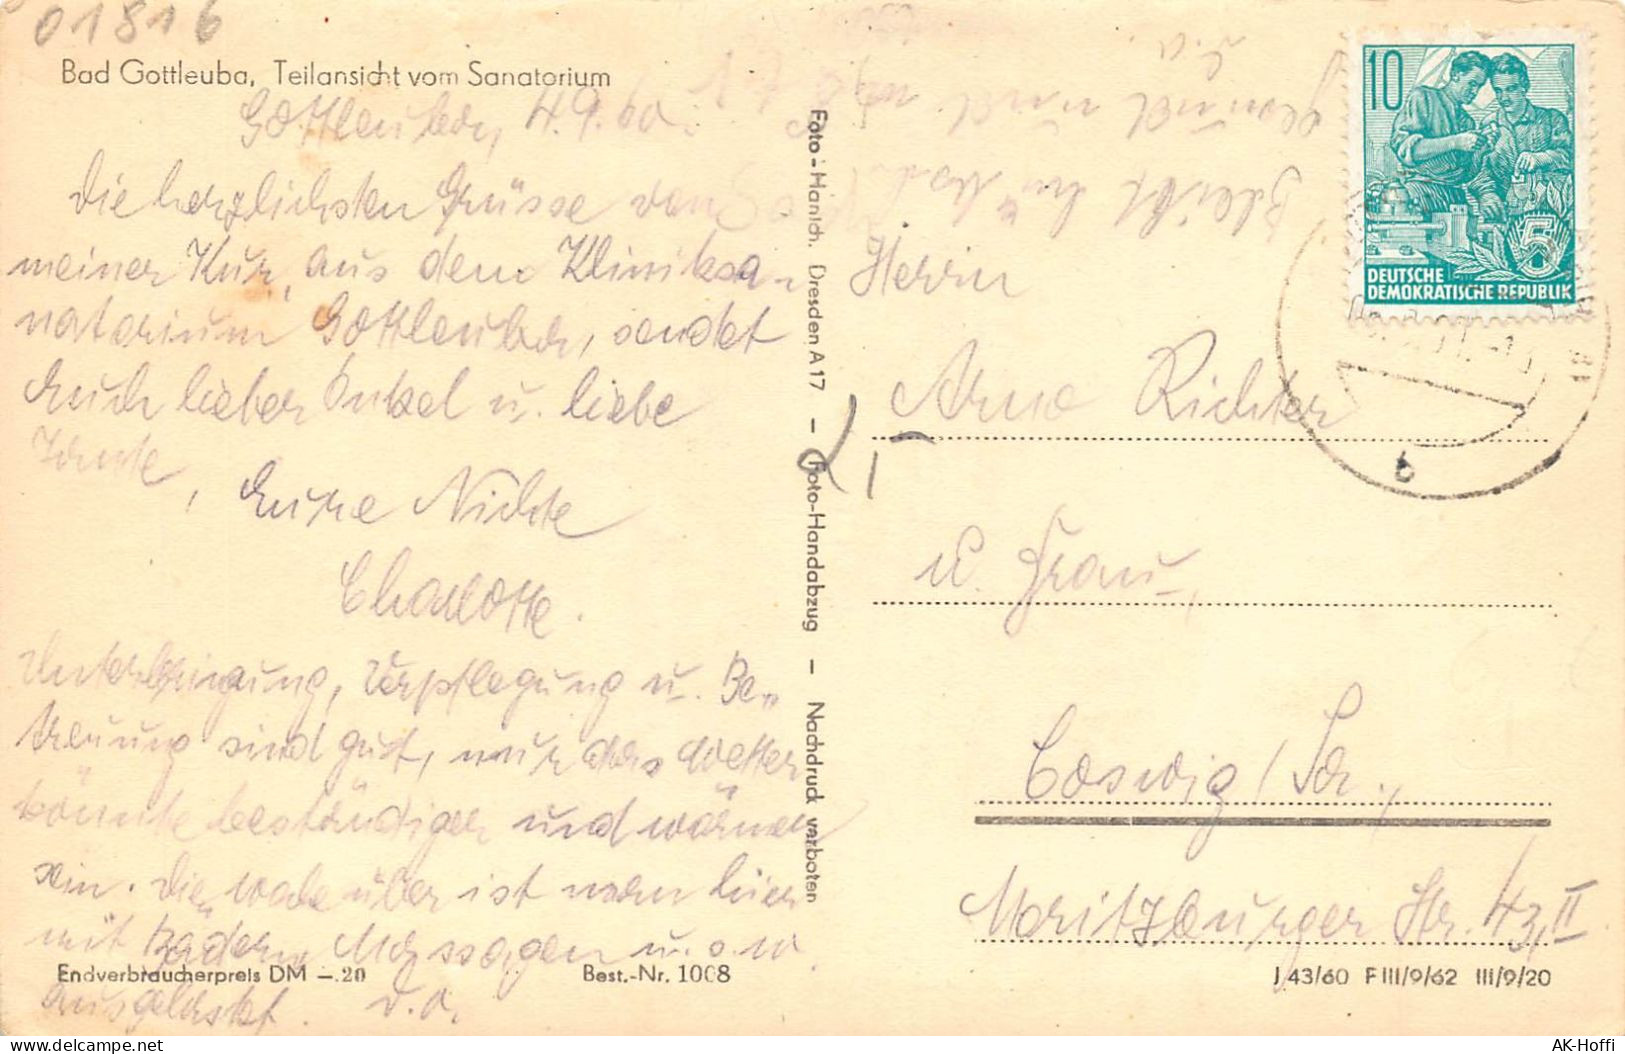 01816
Bad Gottleuba, Teilansicht vom Sanatorium
Gottleuba, 4.9.60.
Die herzlichsten Grüsse von
meiner Kur, aus dem Kliniksa-
natorium Gottleuba, sendet
Euch lieber Onkel u. liebe
Tante, Eure Nichte
Charlotte.
Unterbringung, Verpflegung u. Be-
treuung sind gut, nur das Wetter
könnte beständiger und wärmer
sein. Die Woche über ist man hier
mit Bädern, Massagen u.s.w.
ausgelastet. D.O.
Endverbraucherpreis DM –.20 Best.-Nr. 1008
Foto-Hanich. Dresden A 17 – Foto-Handabzug – Nachdruck verboten
Bleibt
gesund und
D.O.
10
5
DEUTSCHE
DEMOKRATISCHE REPUBLIK
18
b
Herrn
Arno Richter
u. Frau,
Coswig/Sa.,
Moritzburger Str. 43, II
J 43/60 F III/9/62 III/9/20
AK-Hoffi